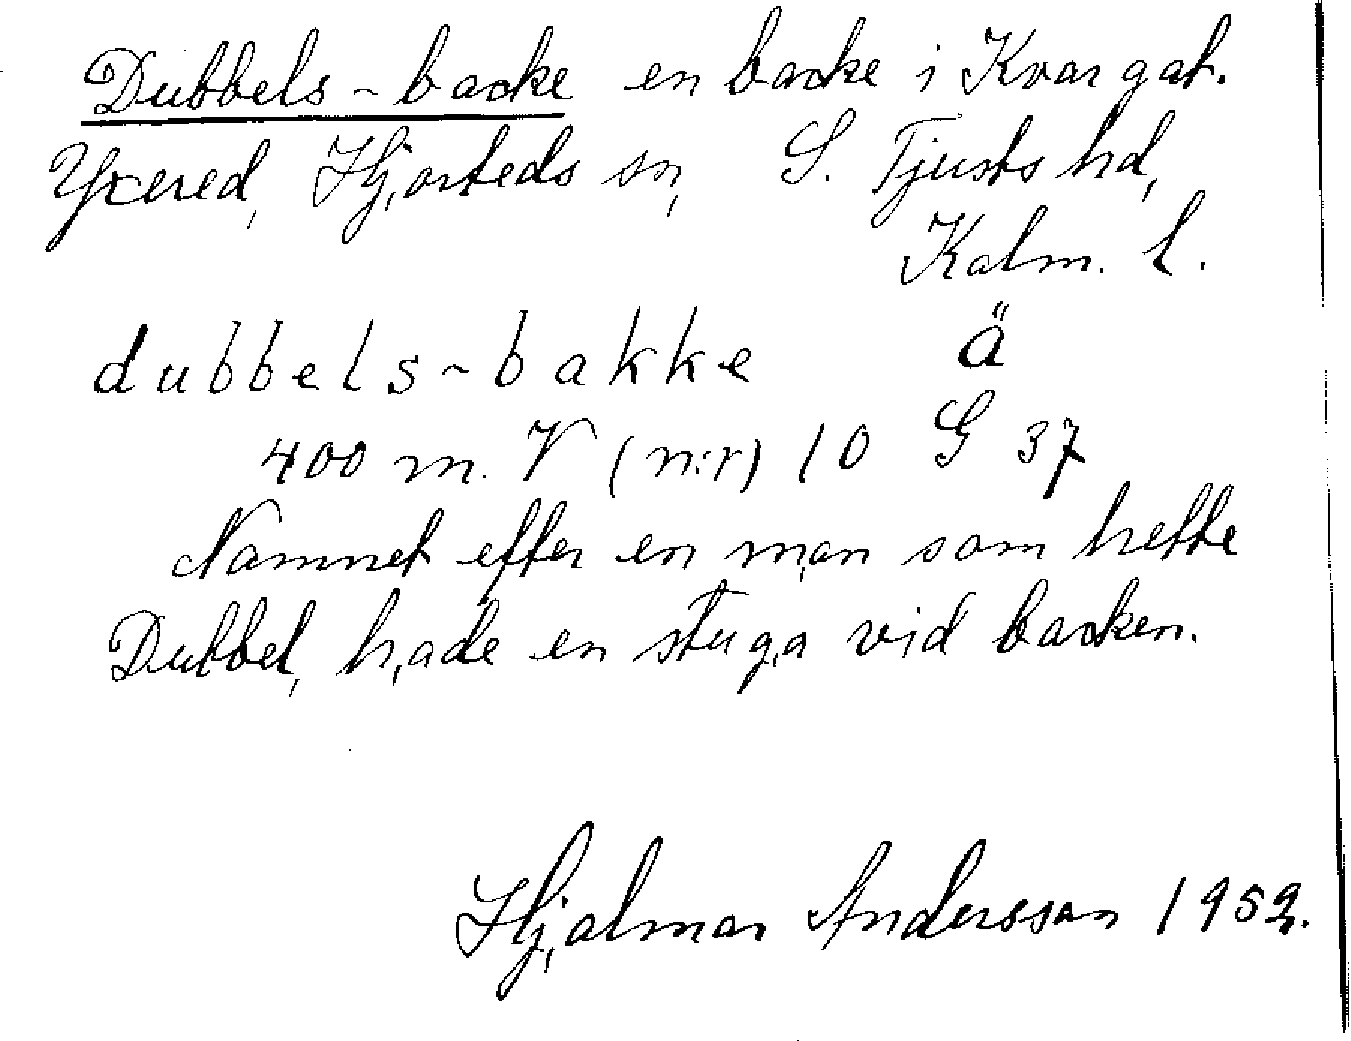 Dubbels-backe en backe i Kvargat.
Yxered, Hjorteds sn, S. Tjusts hd,
Kalm. l.
dubbels-bakke ä
400 m. V (n:r) 10 G 37
Namnet efter en man som hette
Dubbel, hade en stuga vid backen.
Hjalmar Andersson 1952.